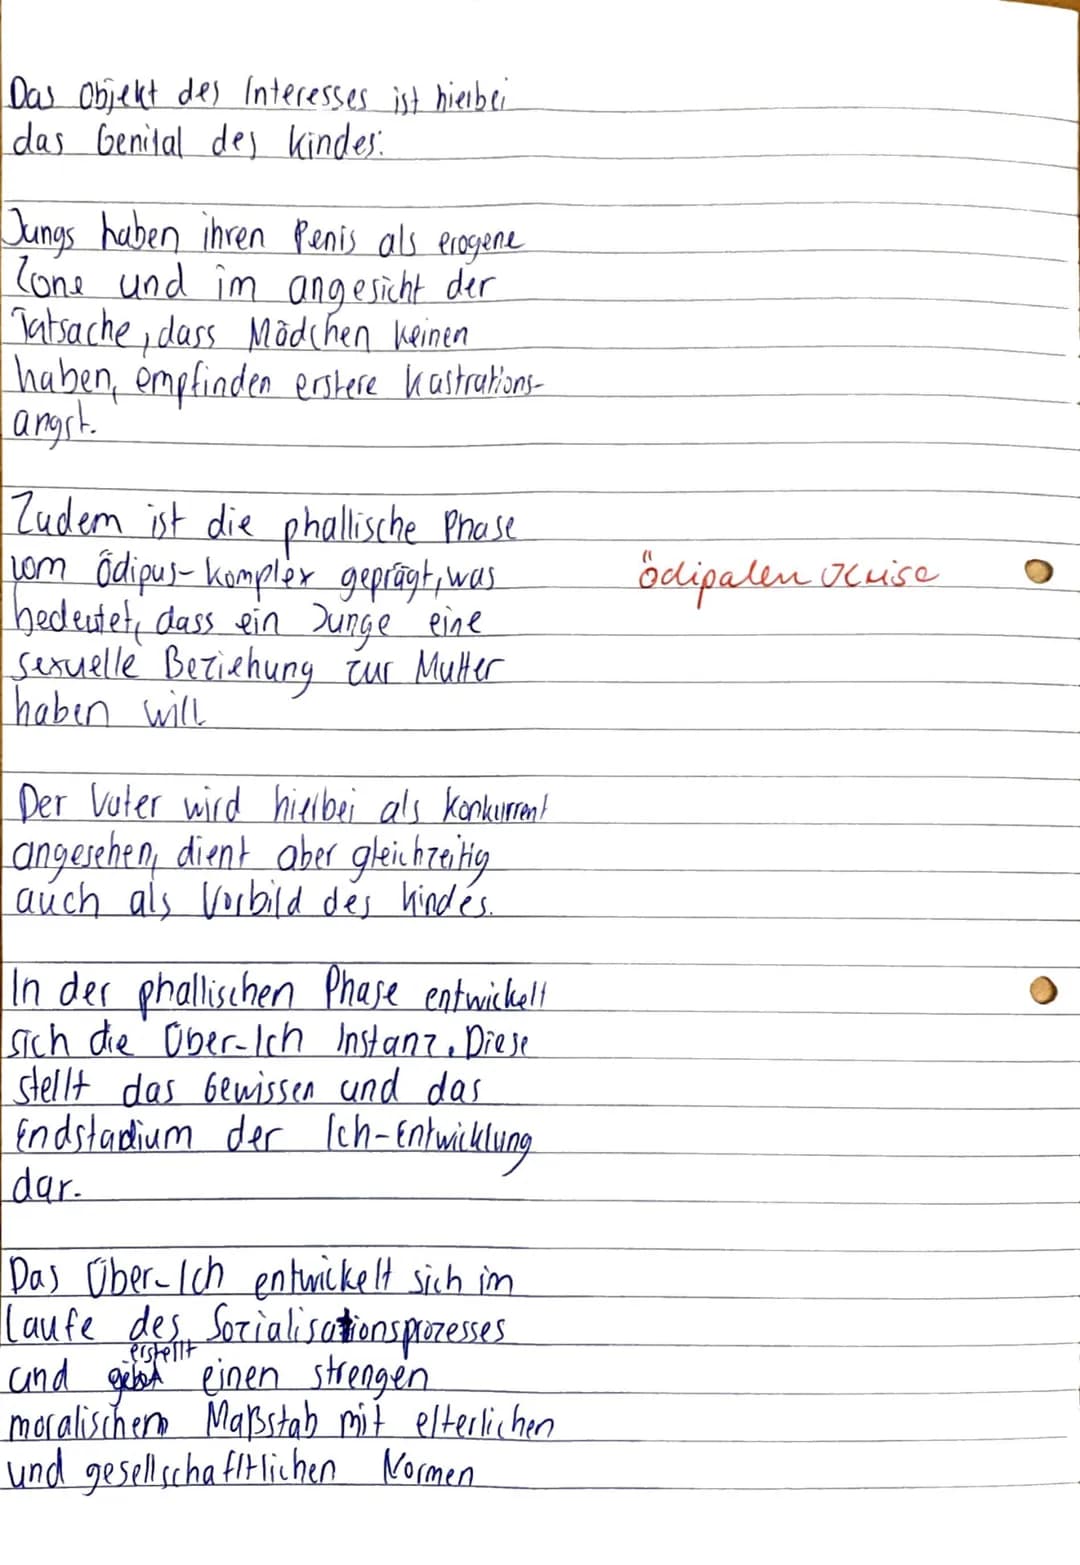 Das Objekt des Interesses ist hierbei
das Genital des Kindes:
Jungs haben ihren Penis als erogene
Zone und im angesicht der
Tatsache, dass Mädchen keinen
haben, empfinden erstere Kastrations-
angst.
Zudem ist die phallische Phase
vom Ödipus-Komplex geprägt, was
ödipalen Krise
bedeutet, dass ein Junge eine
sexuelle Beziehung zur Mutter
haben will
Der Vater wird hierbei als Konkurrent
angesehen, dient aber gleichzeitig
auch als Vorbild des Kindes.
In der phallischen Phase entwickelt
sich die Über-Ich Instanz. Diese
stellt das Gewissen und das
Endstadium der Ich-Entwicklung
dar.
Das Über-Ich entwickelt sich im
Laufe des Sozialisationsprozesses
und erstellt einen strengen
moralischen Maßstab mit elterlichen
und gesellschaftlichen Normen